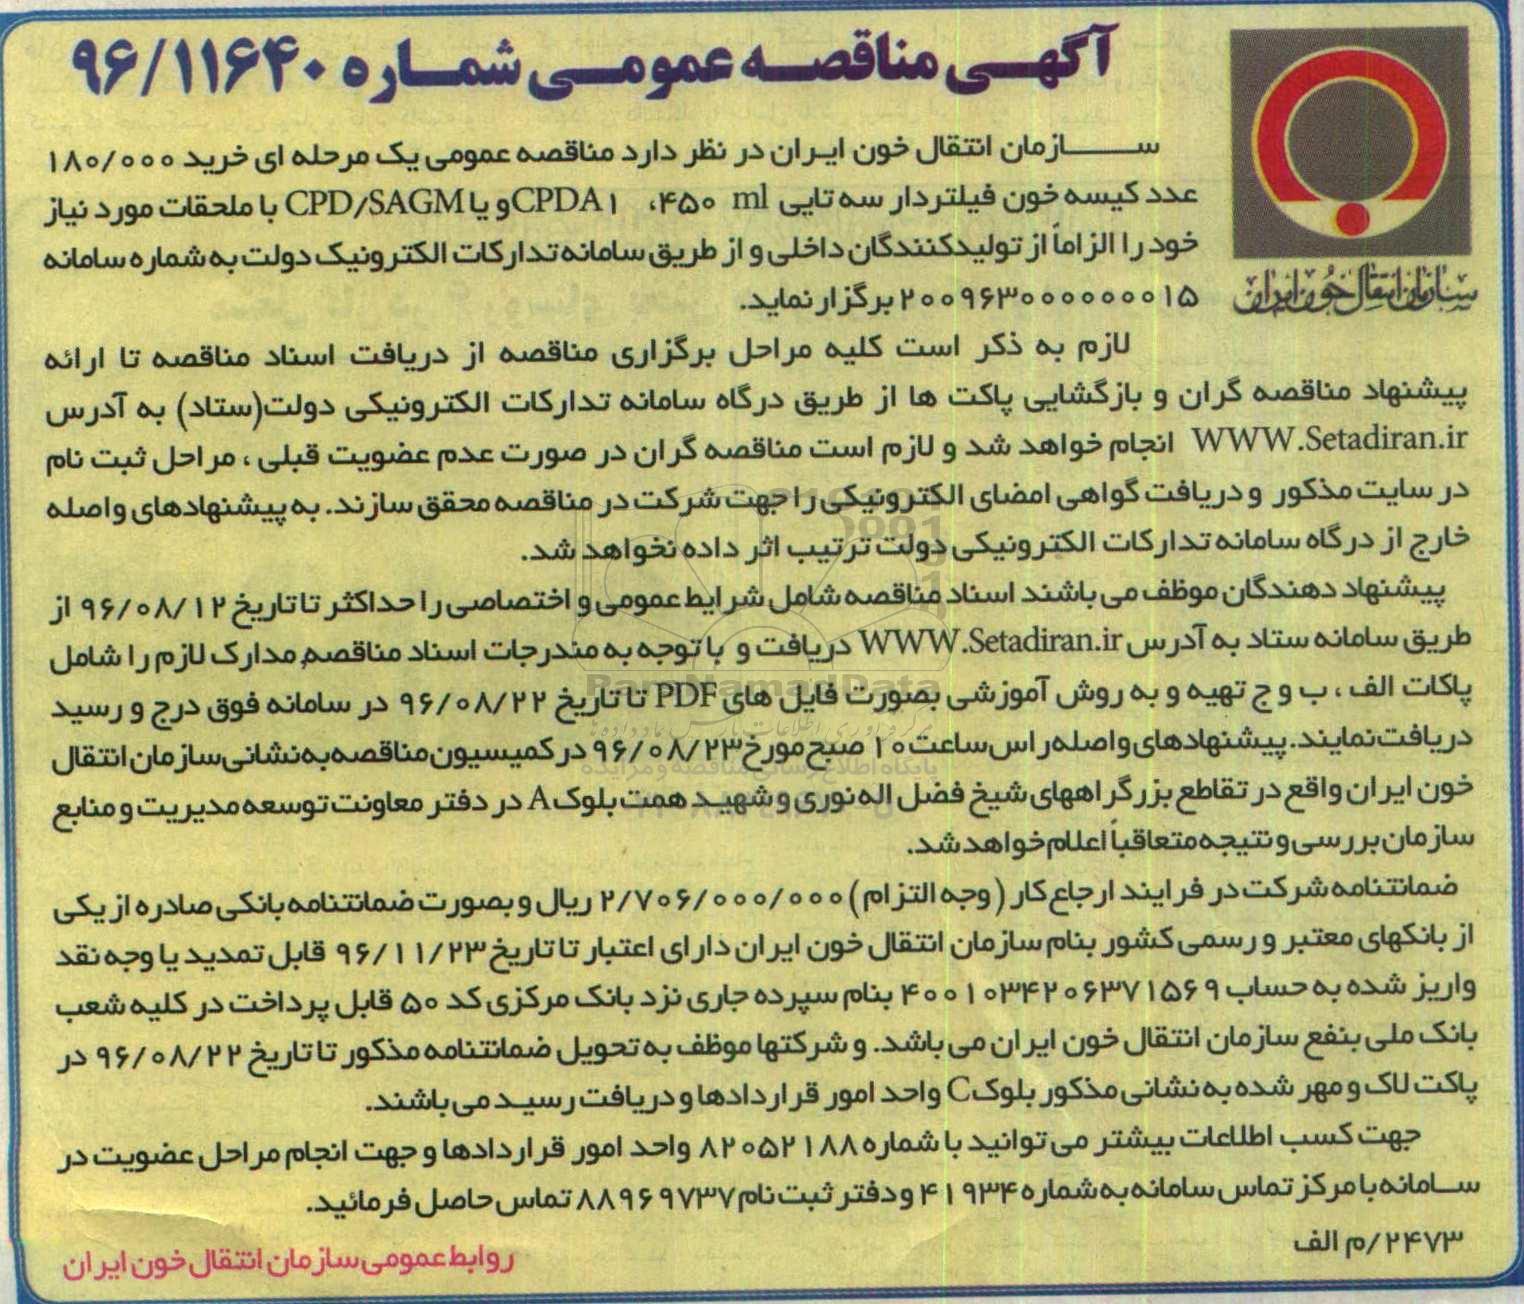 آگهی مناقصه عمومی شماره ۹۶/۱۱۶۴۰
سازمان انتقال خون ایران
سازمان انتقال خون ایران در نظر دارد مناقصه عمومی یک مرحله ای خرید ۱۸۰/۰۰۰
عدد کیسه خون فیلتردار سه تایی ۴۵۰ ml، CPDA۱ و یا CPD/SAGM با ملحقات مورد نیاز
خود را الزاماً از تولیدکنندگان داخلی و از طریق سامانه تدارکات الکترونیک دولت به شماره سامانه
۲۰۰۹۶۳۰۰۰۰۰۰۰۰۱۵ برگزار نماید.
لازم به ذکر است کلیه مراحل برگزاری مناقصه از دریافت اسناد مناقصه تا ارائه
پیشنهاد مناقصه گران و بازگشایی پاکت ها از طریق درگاه سامانه تدارکات الکترونیکی دولت(ستاد) به آدرس
WWW.Setadiran.ir انجام خواهد شد و لازم است مناقصه گران در صورت عدم عضویت قبلی ، مراحل ثبت نام
در سایت مذکور و دریافت گواهی امضای الکترونیکی را جهت شرکت در مناقصه محقق سازند. به پیشنهادهای واصله
خارج از درگاه سامانه تدارکات الکترونیکی دولت ترتیب اثر داده نخواهد شد.
پیشنهاد دهندگان موظف می باشند اسناد مناقصه شامل شرایط عمومی و اختصاصی را حداکثر تا تاریخ ۹۶/۰۸/۱۲ از
طریق سامانه ستاد به آدرس WWW.Setadiran.ir دریافت و با توجه به مندرجات اسناد مناقصه، مدارک لازم را شامل
پاکات الف ، ب و ج تهیه و به روش آموزشی بصورت فایل های PDF تا تاریخ ۹۶/۰۸/۲۲ در سامانه فوق درج و رسید
دریافت نمایند. پیشنهادهای واصله راس ساعت ۱۰ صبح مورخ ۹۶/۰۸/۲۳ در کمیسیون مناقصه به نشانی سازمان انتقال
خون ایران واقع در تقاطع بزرگراههای شیخ فضل اله نوری و شهید همت بلوک A در دفتر معاونت توسعه مدیریت و منابع
سازمان بررسی و نتیجه متعاقباً اعلام خواهد شد.
ضمانتنامه شرکت در فرایند ارجاع کار (وجه التزام) ۲/۷۰۶/۰۰۰/۰۰۰ ریال و بصورت ضمانتنامه بانکی صادره از یکی
از بانکهای معتبر و رسمی کشور بنام سازمان انتقال خون ایران دارای اعتبار تا تاریخ ۹۶/۱۱/۲۳ قابل تمدید یا وجه نقد
واریز شده به حساب ۴۰۰۱۰۳۴۲۰۶۳۷۱۵۶۹ بنام سپرده جاری نزد بانک مرکزی کد ۵۰ قابل پرداخت در کلیه شعب
بانک ملی بنفع سازمان انتقال خون ایران می باشد. و شرکتها موظف به تحویل ضمانتنامه مذکور تا تاریخ ۹۶/۰۸/۲۲ در
پاکت لاک و مهر شده به نشانی مذکور بلوک C واحد امور قراردادها و دریافت رسید می باشند.
جهت کسب اطلاعات بیشتر می توانید با شماره ۸۲۰۵۲۱۸۸ واحد امور قراردادها و جهت انجام مراحل عضویت در
سامانه با مرکز تماس سامانه به شماره ۴۱۹۳۴ و دفتر ثبت نام ۸۸۹۶۹۷۳۷ تماس حاصل فرمائید.
۲۴۷۳/م الف
روابط عمومی سازمان انتقال خون ایران